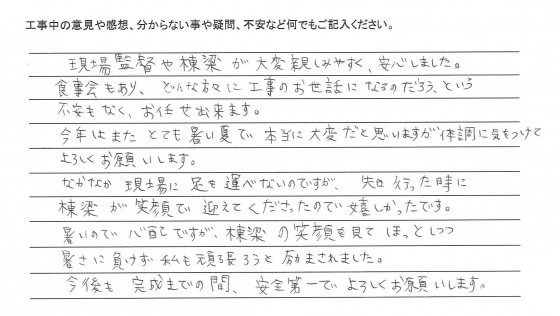 工事中の意見や感想、分からない事や疑問、不安など何でもご記入ください。
現場監督や棟梁が大変親しみやすく、安心しました。
食事会もあり、どんな方々に工事のお世話になるのだろう、という
不安もなく、お任せ出来ます。
今年はまたとても暑い夏で本当に大変だと思いますが体調に気をつけて
よろしくお願いします。
なかなか現場に足を運べないのですが、先日行った時に
棟梁が笑顔で迎えてくださったので嬉しかったです。
暑いので心配ですが、棟梁の笑顔を見てほっとしつつ
暑さに負けず私も頑張ろうと励まされました。
今後も完成までの間、安全第一でよろしくお願いします。